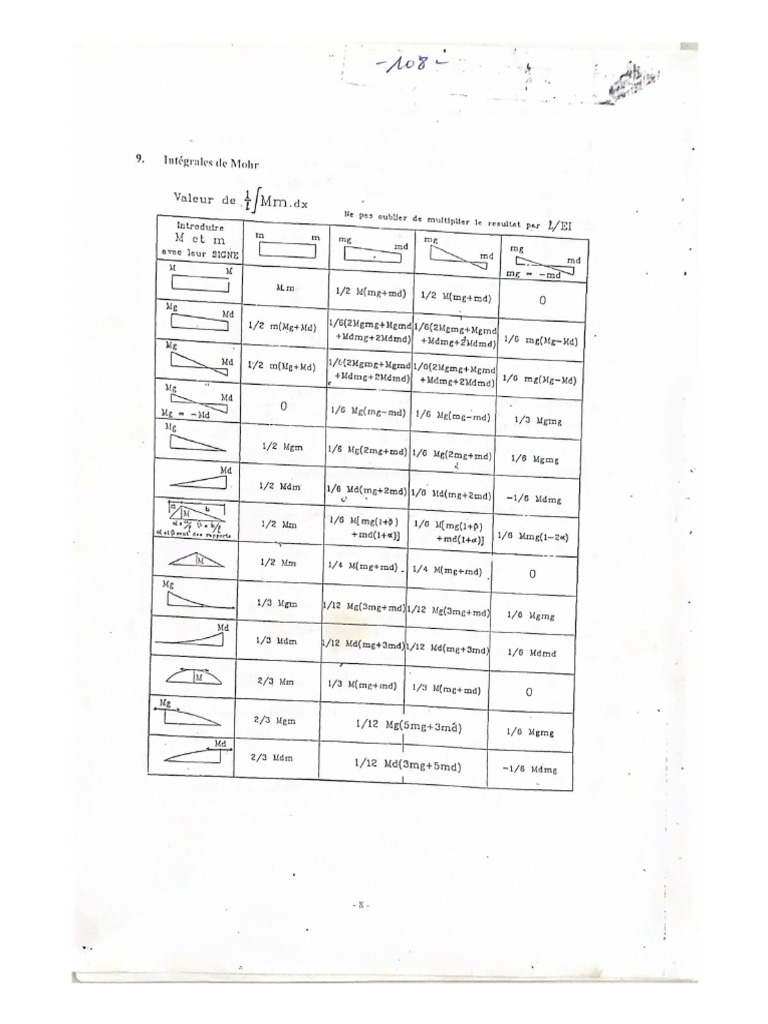 -108-
9. Intégrales de Mohr
Valeur de 1/l ∫Mm.dx
Ne pas oublier de multiplier le resultat par L/EI
Introduire
M et m
avec leur SIGNE
m m
mg md
mg md
mg md
mg = -md
M M
M.m
1/2 M(mg+md)
1/2 M(mg+md)
0
Mg Md
1/2 m(Mg+Md)
1/6(2Mgmg+Mgmd
+Mdmg+2Mdmd)
1/6(2Mgmg+Mgmd
+Mdmg+2Mdmd)
1/6 mg(Mg-Md)
Mg Md
1/2 m(Mg+Md)
1/6(2Mgmg+Mgmd
+Mdmg+2Mdmd)
1/6(2Mgmg+Mgmd
+Mdmg+2Mdmd)
1/6 mg(Mg-Md)
Mg
Mg = -Md
0
1/6 Mg(mg-md)
1/6 Mg(mg-md)
1/3 Mgmg
Mg
1/2 Mgm
1/6 Mg(2mg+md)
1/6 Mg(2mg+md)
1/6 Mgmg
Md
1/2 Mdm
1/6 Md(mg+2md)
1/6 Md(mg+2md)
-1/6 Mdmg
a b
M
α = a/l β = b/l
α et β sont des rapports
1/2 Mm
1/6 M[mg(1+β)
+md(1+α)]
1/6 M[mg(1+β)
+md(1+α)]
1/6 Mmg(1-2α)
M
1/2 Mm
1/4 M(mg+md)
1/4 M(mg+md)
0
Mg
1/3 Mgm
1/12 Mg(3mg+md)
1/12 Mg(3mg+md)
1/6 Mgmg
Md
1/3 Mdm
1/12 Md(mg+3md)
1/12 Md(mg+3md)
1/6 Mdmd
M
2/3 Mm
1/3 M(mg+md)
1/3 M(mg+md)
0
Mg
2/3 Mgm
1/12 Mg(5mg+3md)
1/6 Mgmg
Md
2/3 Mdm
1/12 Md(3mg+5md)
-1/6 Mdmg
- 8 -